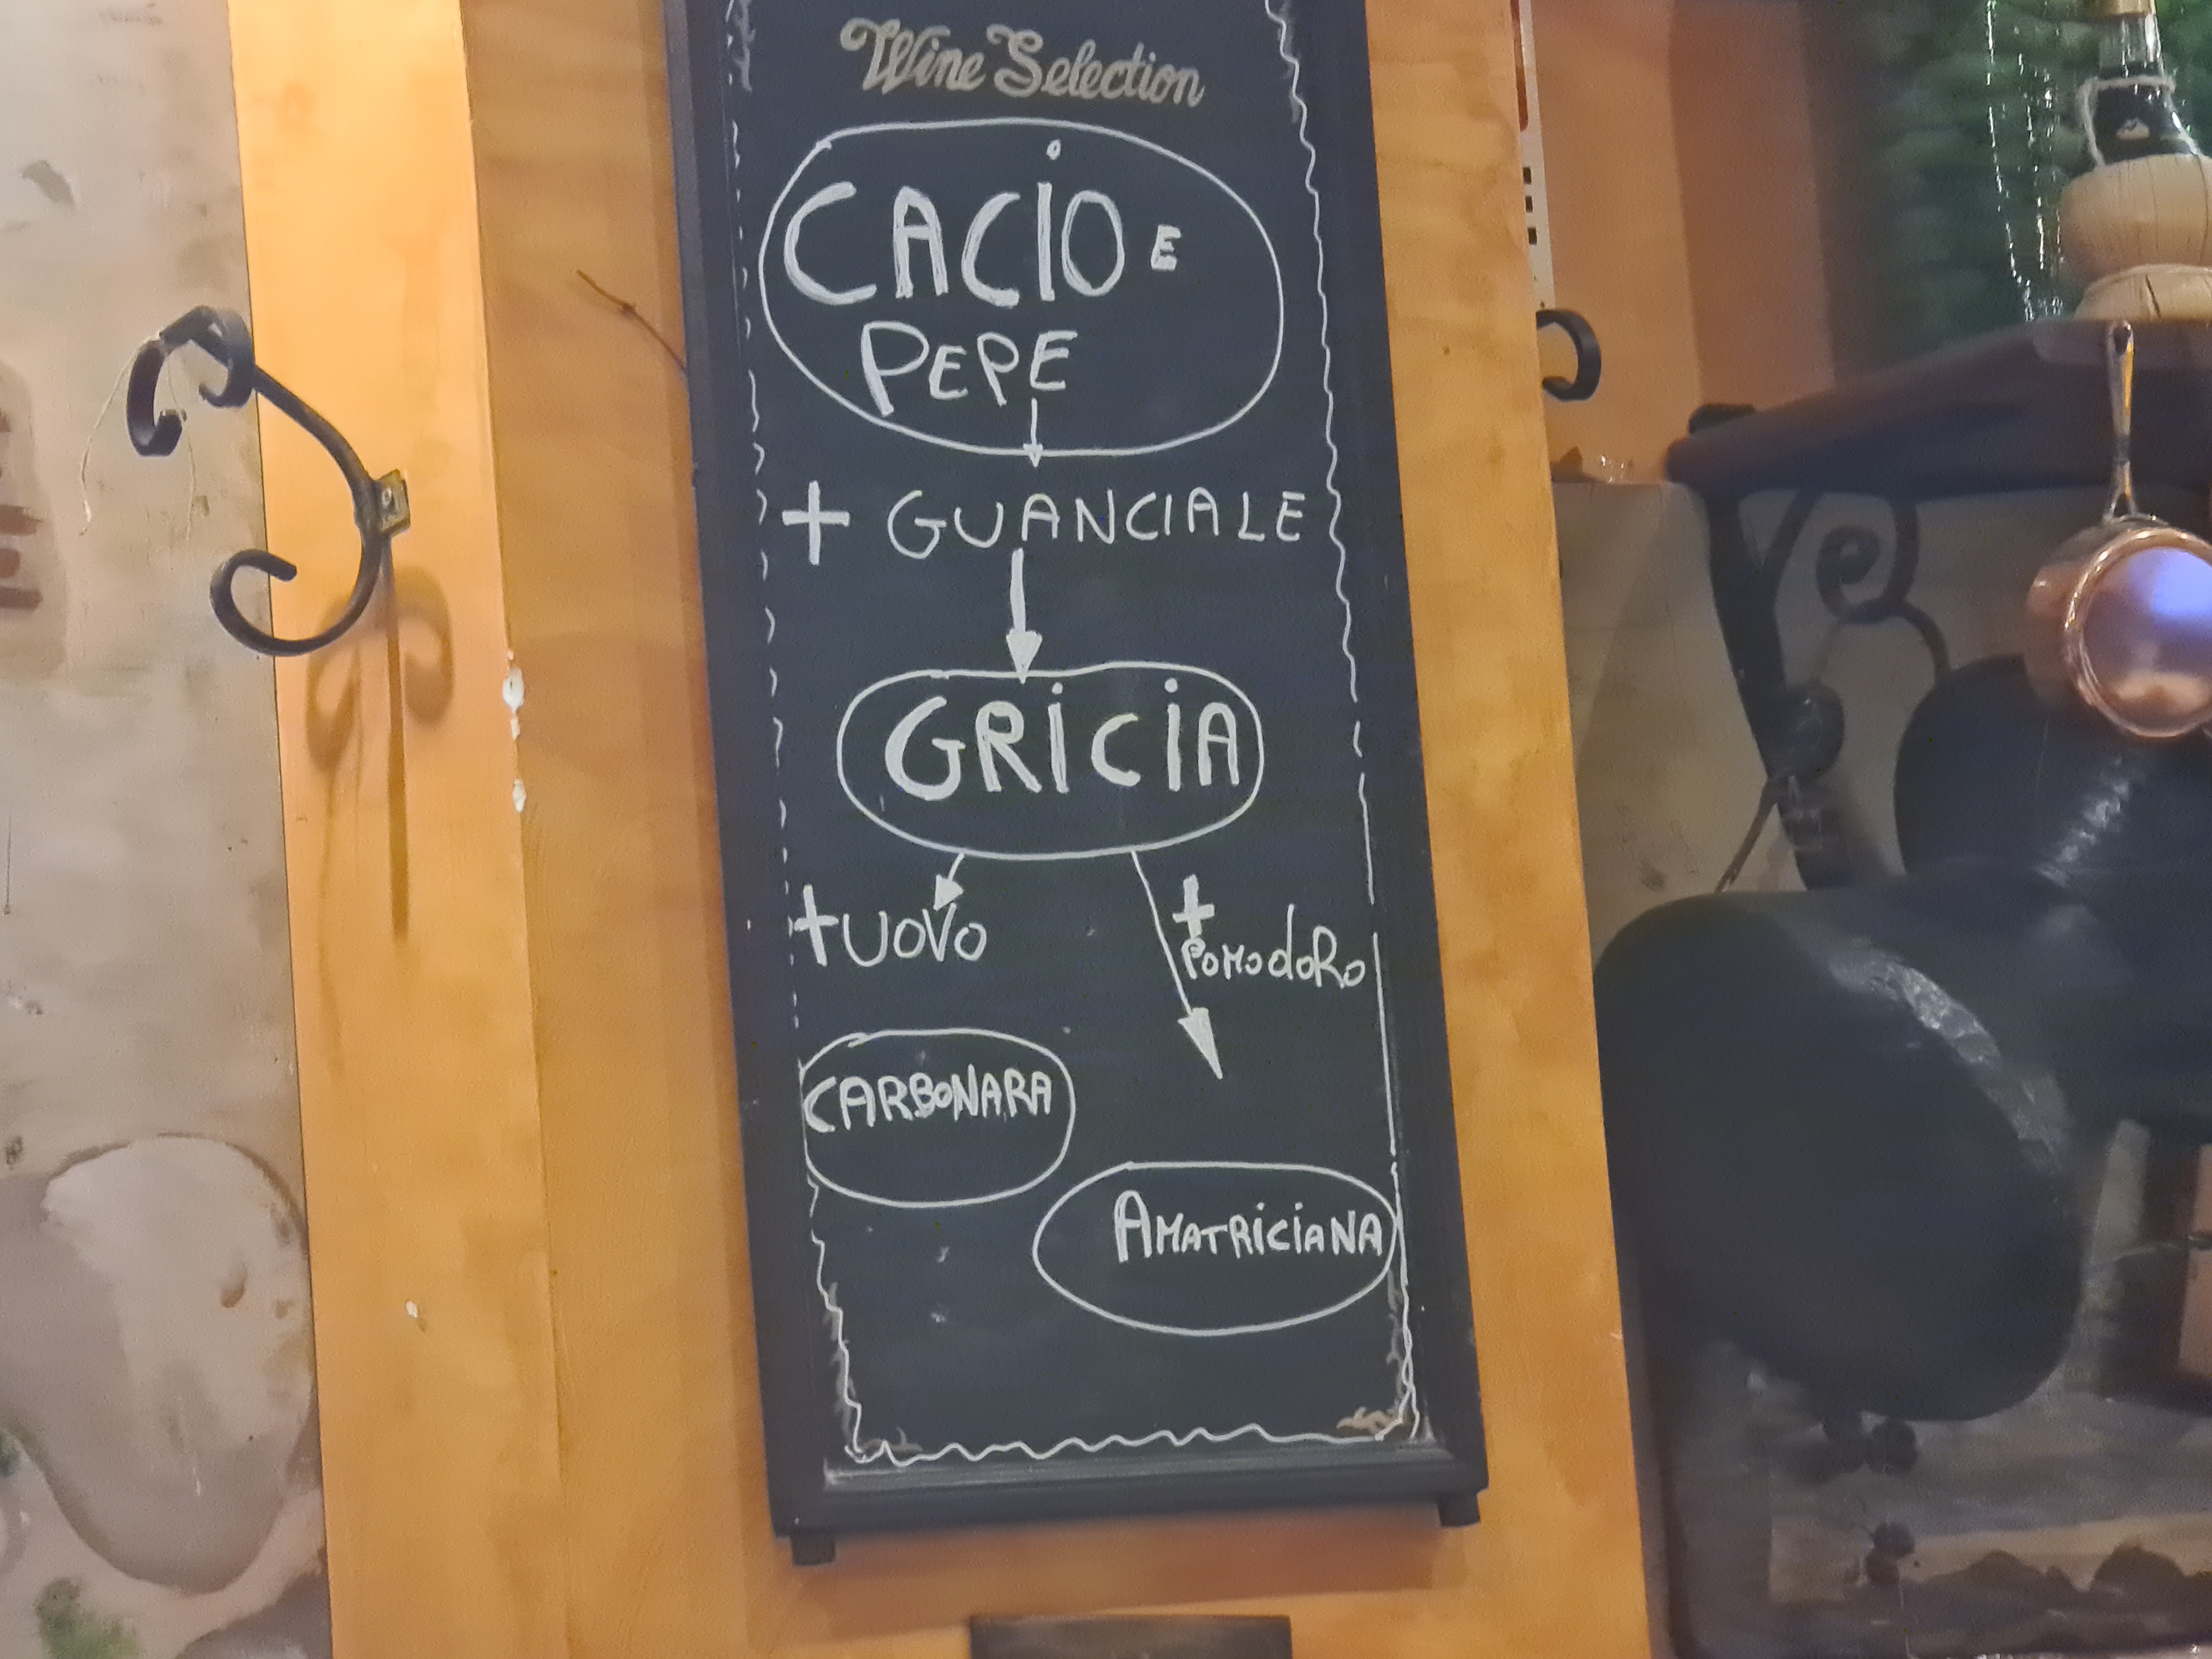 Wine Selection
CACIO E
PEPE
+ GUANCIALE
GRICIA
+ UOVO
+
POMODORO
CARBONARA
AMATRICIANA